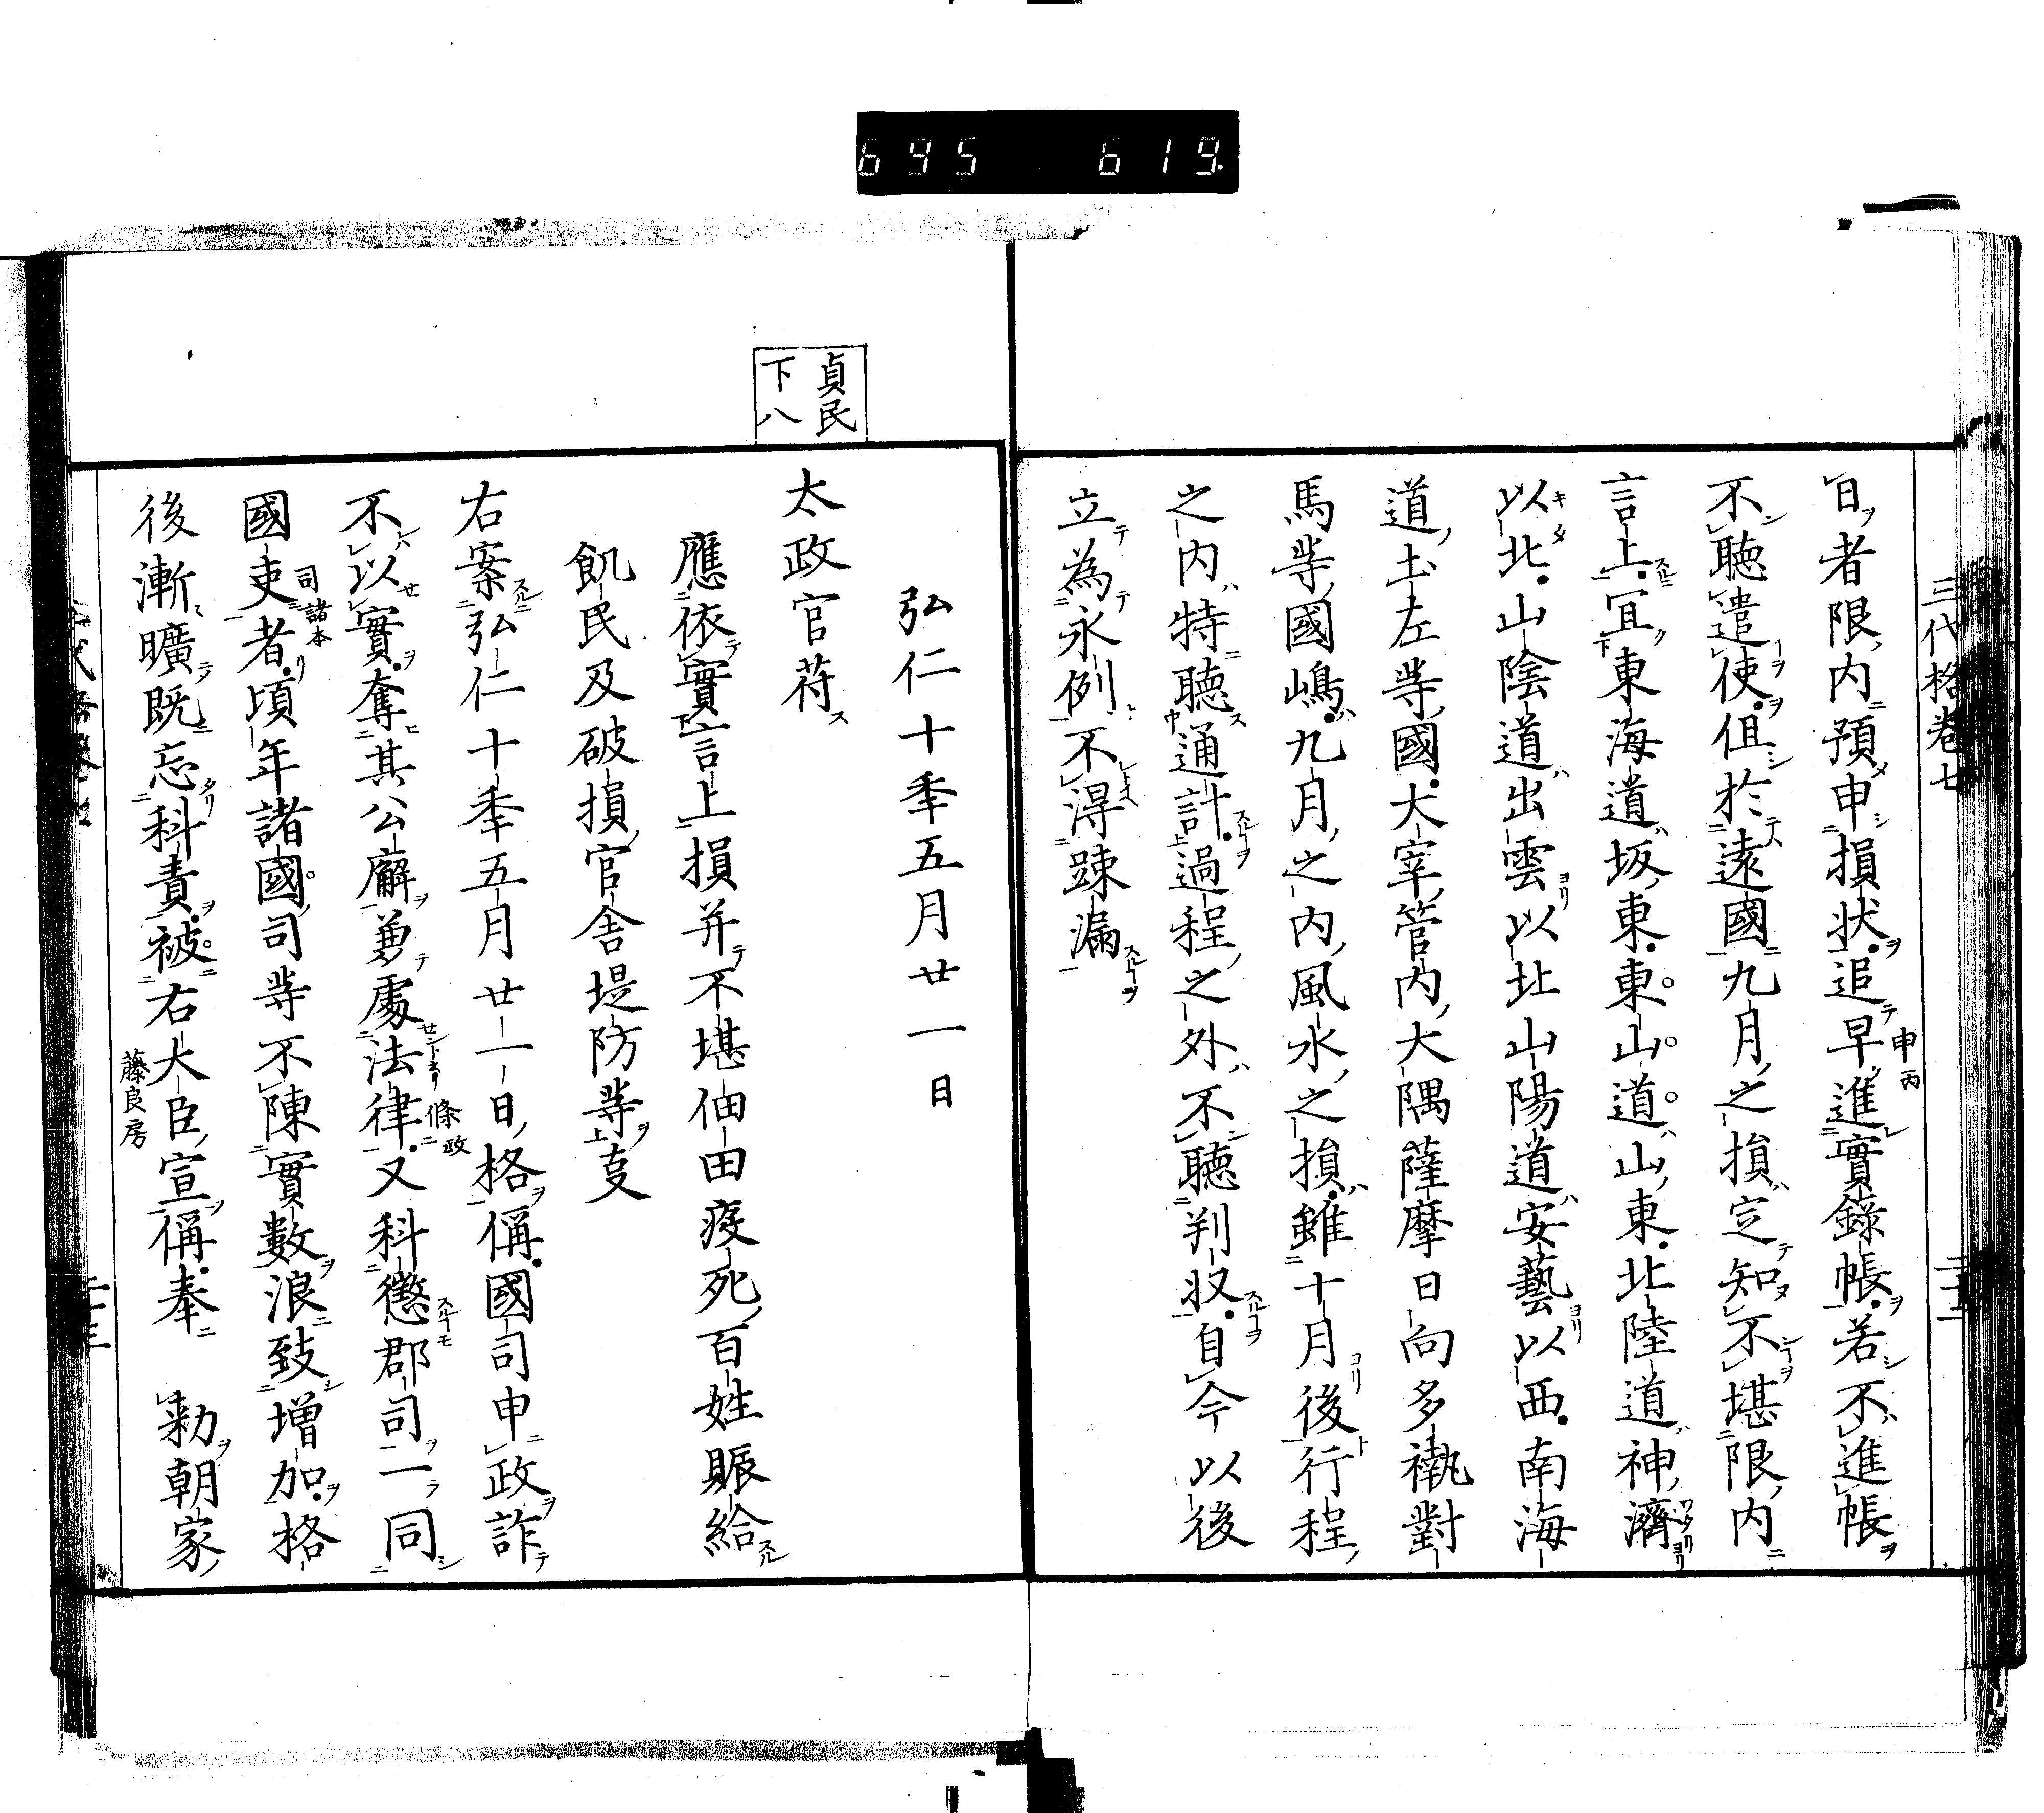 695 619
三代格卷七
日者限内預申損状追早進實錄帳若不進帳
申丙
不聴遣使但於遠國九月之損定知不堪限内
言上宜東海道坂東東山道山東北陸道神濟
以北山陰道出雲以北山陽道安藝以西南海
道土左等國大宰管内大隅薩摩日向多褹對
馬等國嶋九月之内風水之損雖十月後行程
之内特聴通計過程之外不聴判收自今以後
立為永例不得踈漏
弘仁十季五月廿一日
貞民
下八
太政官符
應依實言上損并不堪佃田疫死百姓賑給
飢民及破損官舍堤防等支
右案弘仁十季五月廿一日格偁國司申政詐
不以實奪其公廨兼處法律又科懲郡司一同
條政
國吏者頃年諸國司等不陳實數浪致増加格
司諸本
後漸曠既忘科責被右大臣宣偁奉 勅朝家
藤良房